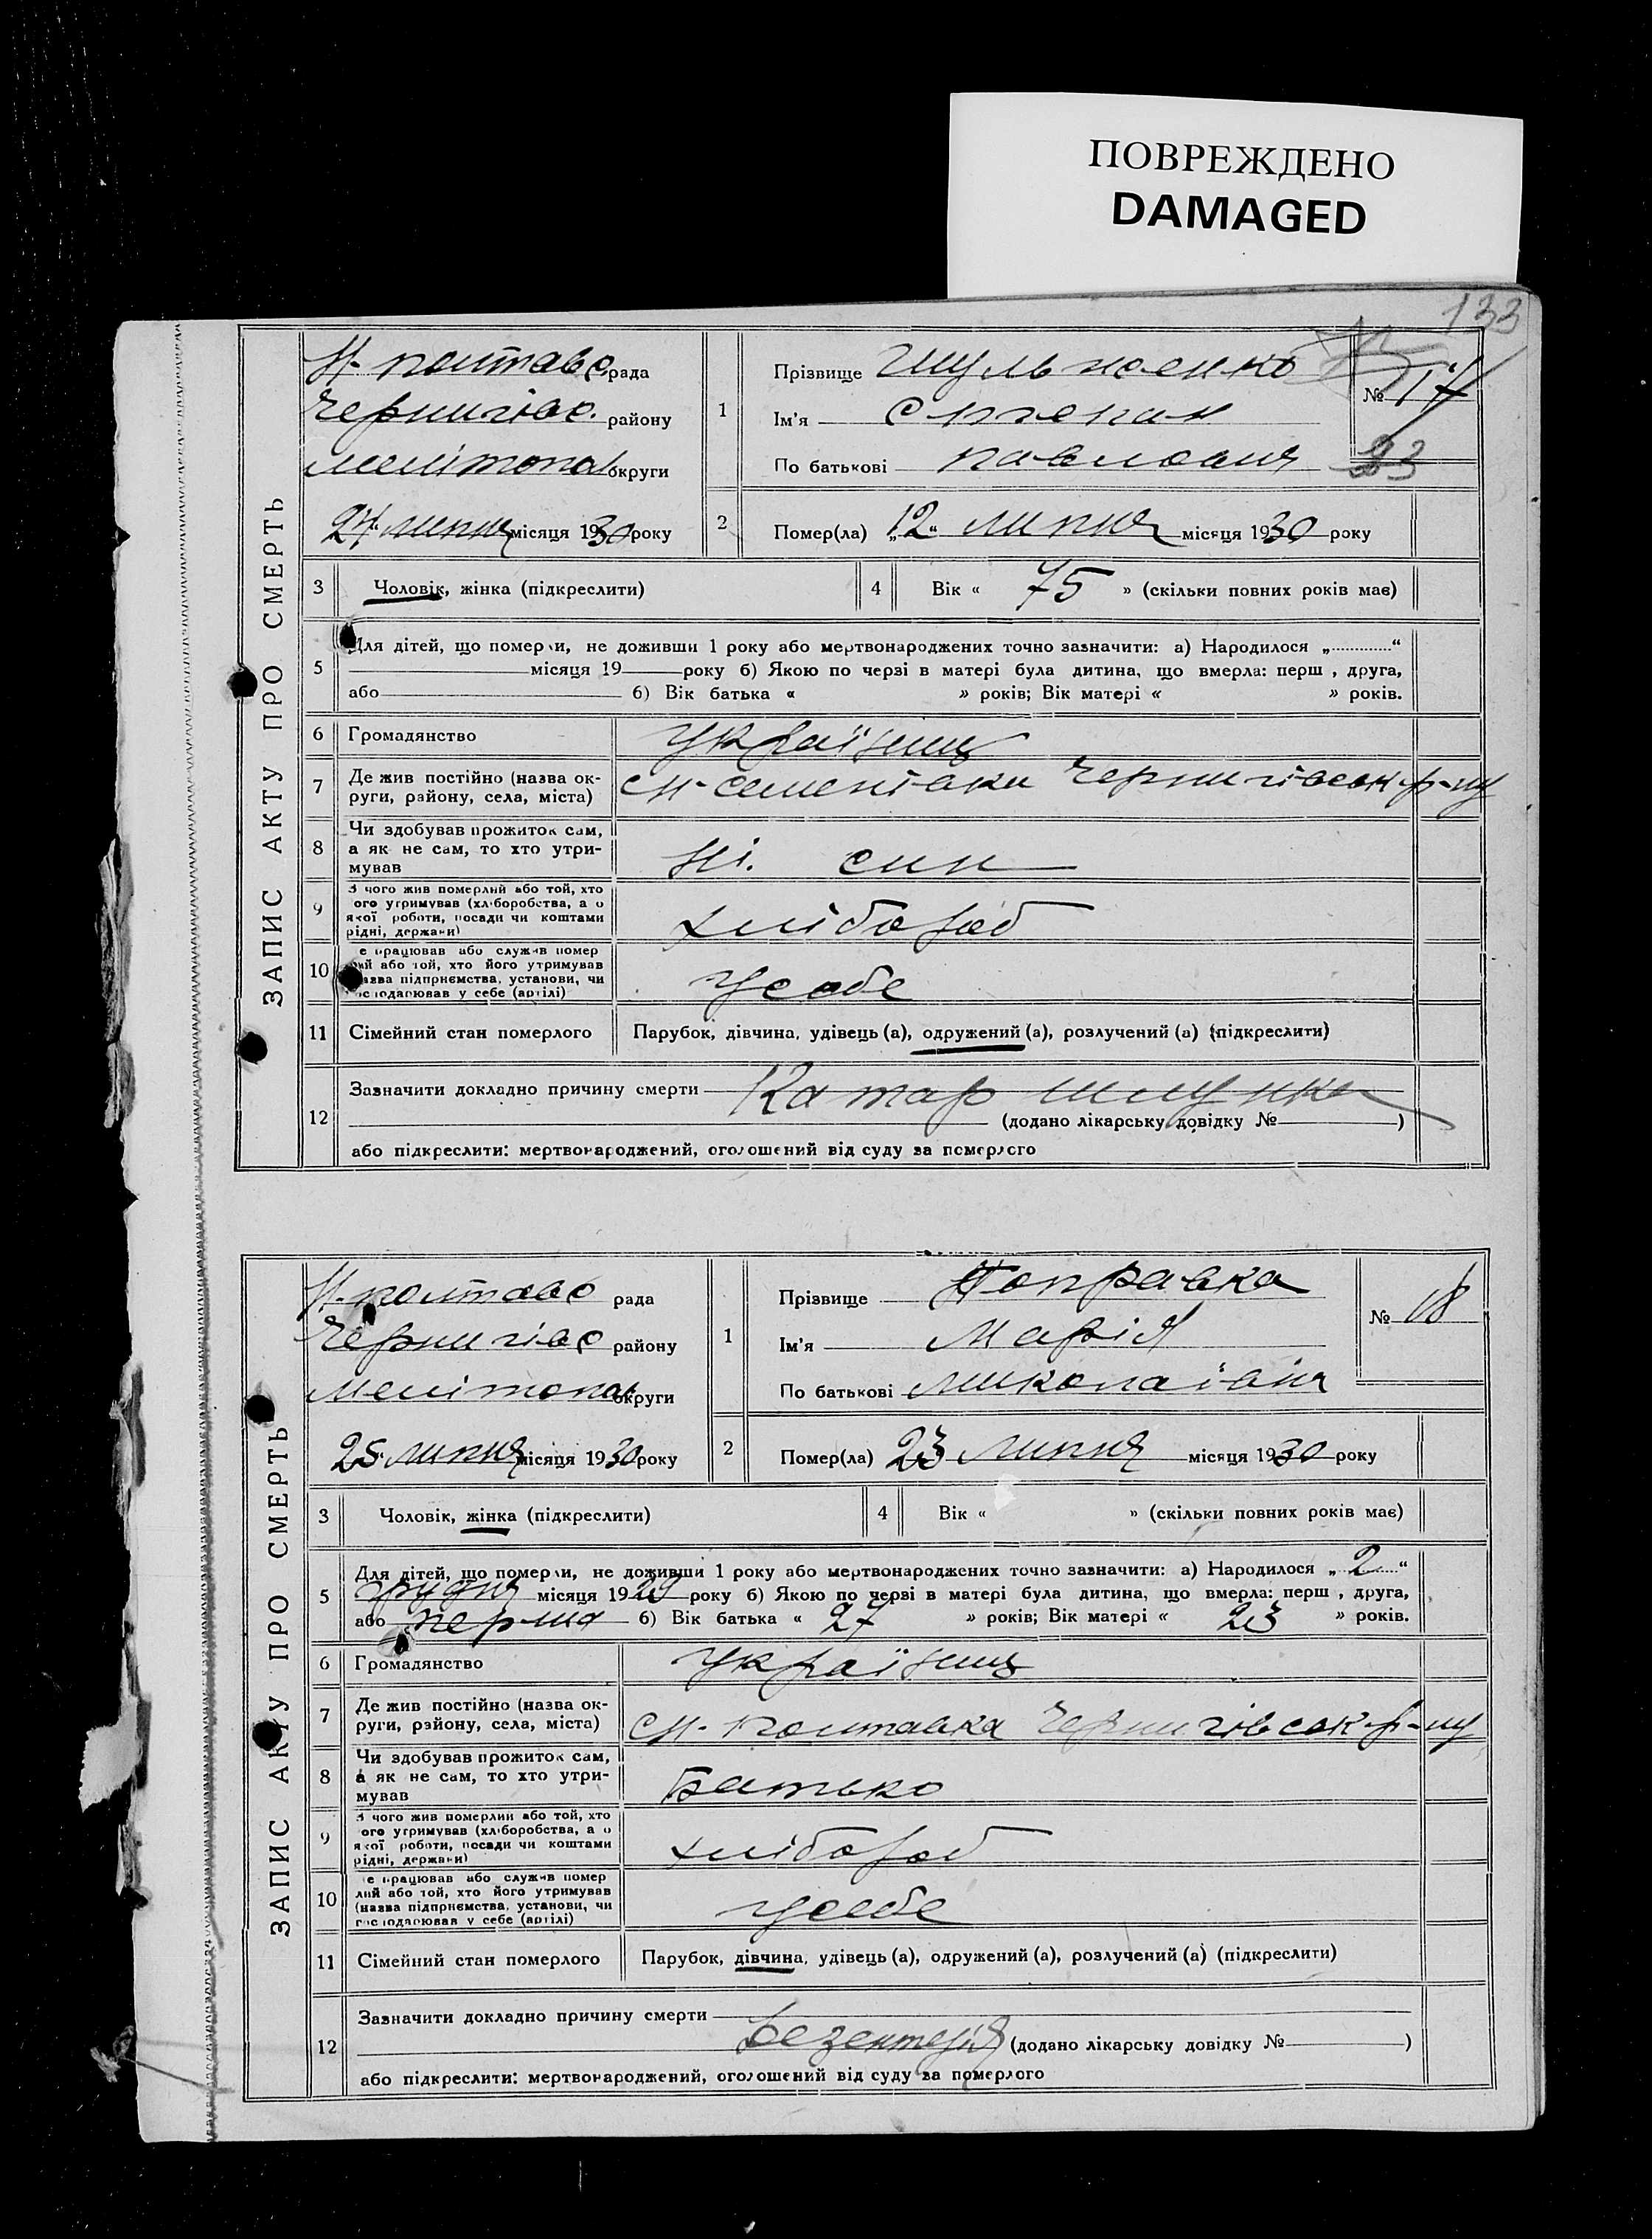 ПОВРЕЖДЕНО
DAMAGED
133
ЗАПИС АКТУ ПРО СМЕРТЬ
Н-полтавс рада
Чернигівс. району
Мелітопол округи
24 липня місяця 1930 року
1
Прізвище Шульженко
Ім'я Степан
По батькові Павлович
№ 17
23
2
Помер(ла) „12“ липня місяця 1930 року
3
Чоловік, жінка (підкреслити)
4
Вік « 75 » (скільки повних років має)
5
Для дітей, що померли, не доживши 1 року або мертвонароджених точно зазначити: а) Народилося „ “
місяця 19 року б) Якою по черзі в матері була дитина, що вмерла: перш , друга,
або б) Вік батька « » років; Вік матері « » років.
6
Громадянство
Українец
7
Де жив постійно (назва ок-
руги, району, села, міста)
сН-Семенівки Чернигівськ р-ну
8
Чи здобував прожиток сам,
а як не сам, то хто утри-
мував
Ні. син
9
З чого жив померлий або той, хто
ого утримував (хліборобства, а о
якої роботи, посади чи коштами
рідні, держави)
хлібороб
10
е працював або служив помер
ий або той, хто його утримував
назва підприємства, установи, чи
господарював у себе (артілі)
Усебе
11
Сімейний стан померлого
Парубок, дівчина, удівець (а), одружений (а), розлучений (а) (підкреслити)
12
Зазначити докладно причину смерти Катар шлунка
(додано лікарську довідку № )
або підкреслити: мертвонароджений, оголошений від суду за померлого
ЗАПИС АКТУ ПРО СМЕРТЬ
Н-полтавс рада
Чернигівс району
Мелітопол округи
25 липня місяця 1930 року
1
Прізвище Поправка
Ім'я Марія
По батькові Миколаівна
№ 18
2
Помер(ла) 23 липня місяця 1930 року
3
Чоловік, жінка (підкреслити)
4
Вік « » (скільки повних років має)
5
Для дітей, що померли, не доживши 1 року або мертвонароджених точно зазначити: а) Народилося „2“
грудня місяця 1929 року б) Якою по черзі в матері була дитина, що вмерла: перш , друга,
або перша б) Вік батька « 27 » років; Вік матері « 23 » років.
6
Громадянство
Українец
7
Де жив постійно (назва ок-
руги, району, села, міста)
сН-Полтавка Чернигівськ р-ну
8
Чи здобував прожиток сам,
а як не сам, то хто утри-
мував
Батько
9
З чого жив померлий або той, хто
ого утримував (хліборобства, а о
якої роботи, посади чи коштами
рідні, держави)
хлібороб
10
е працював або служив помер
лий або той, хто його утримував
(назва підприємства, установи, чи
господарював у себе (артілі)
Усебе
11
Сімейний стан померлого
Парубок, дівчина, удівець (а), одружений (а), розлучений (а) (підкреслити)
12
Зазначити докладно причину смерти
Дезентерія (додано лікарську довідку № )
або підкреслити: мертвонароджений, оголошений від суду за померлого